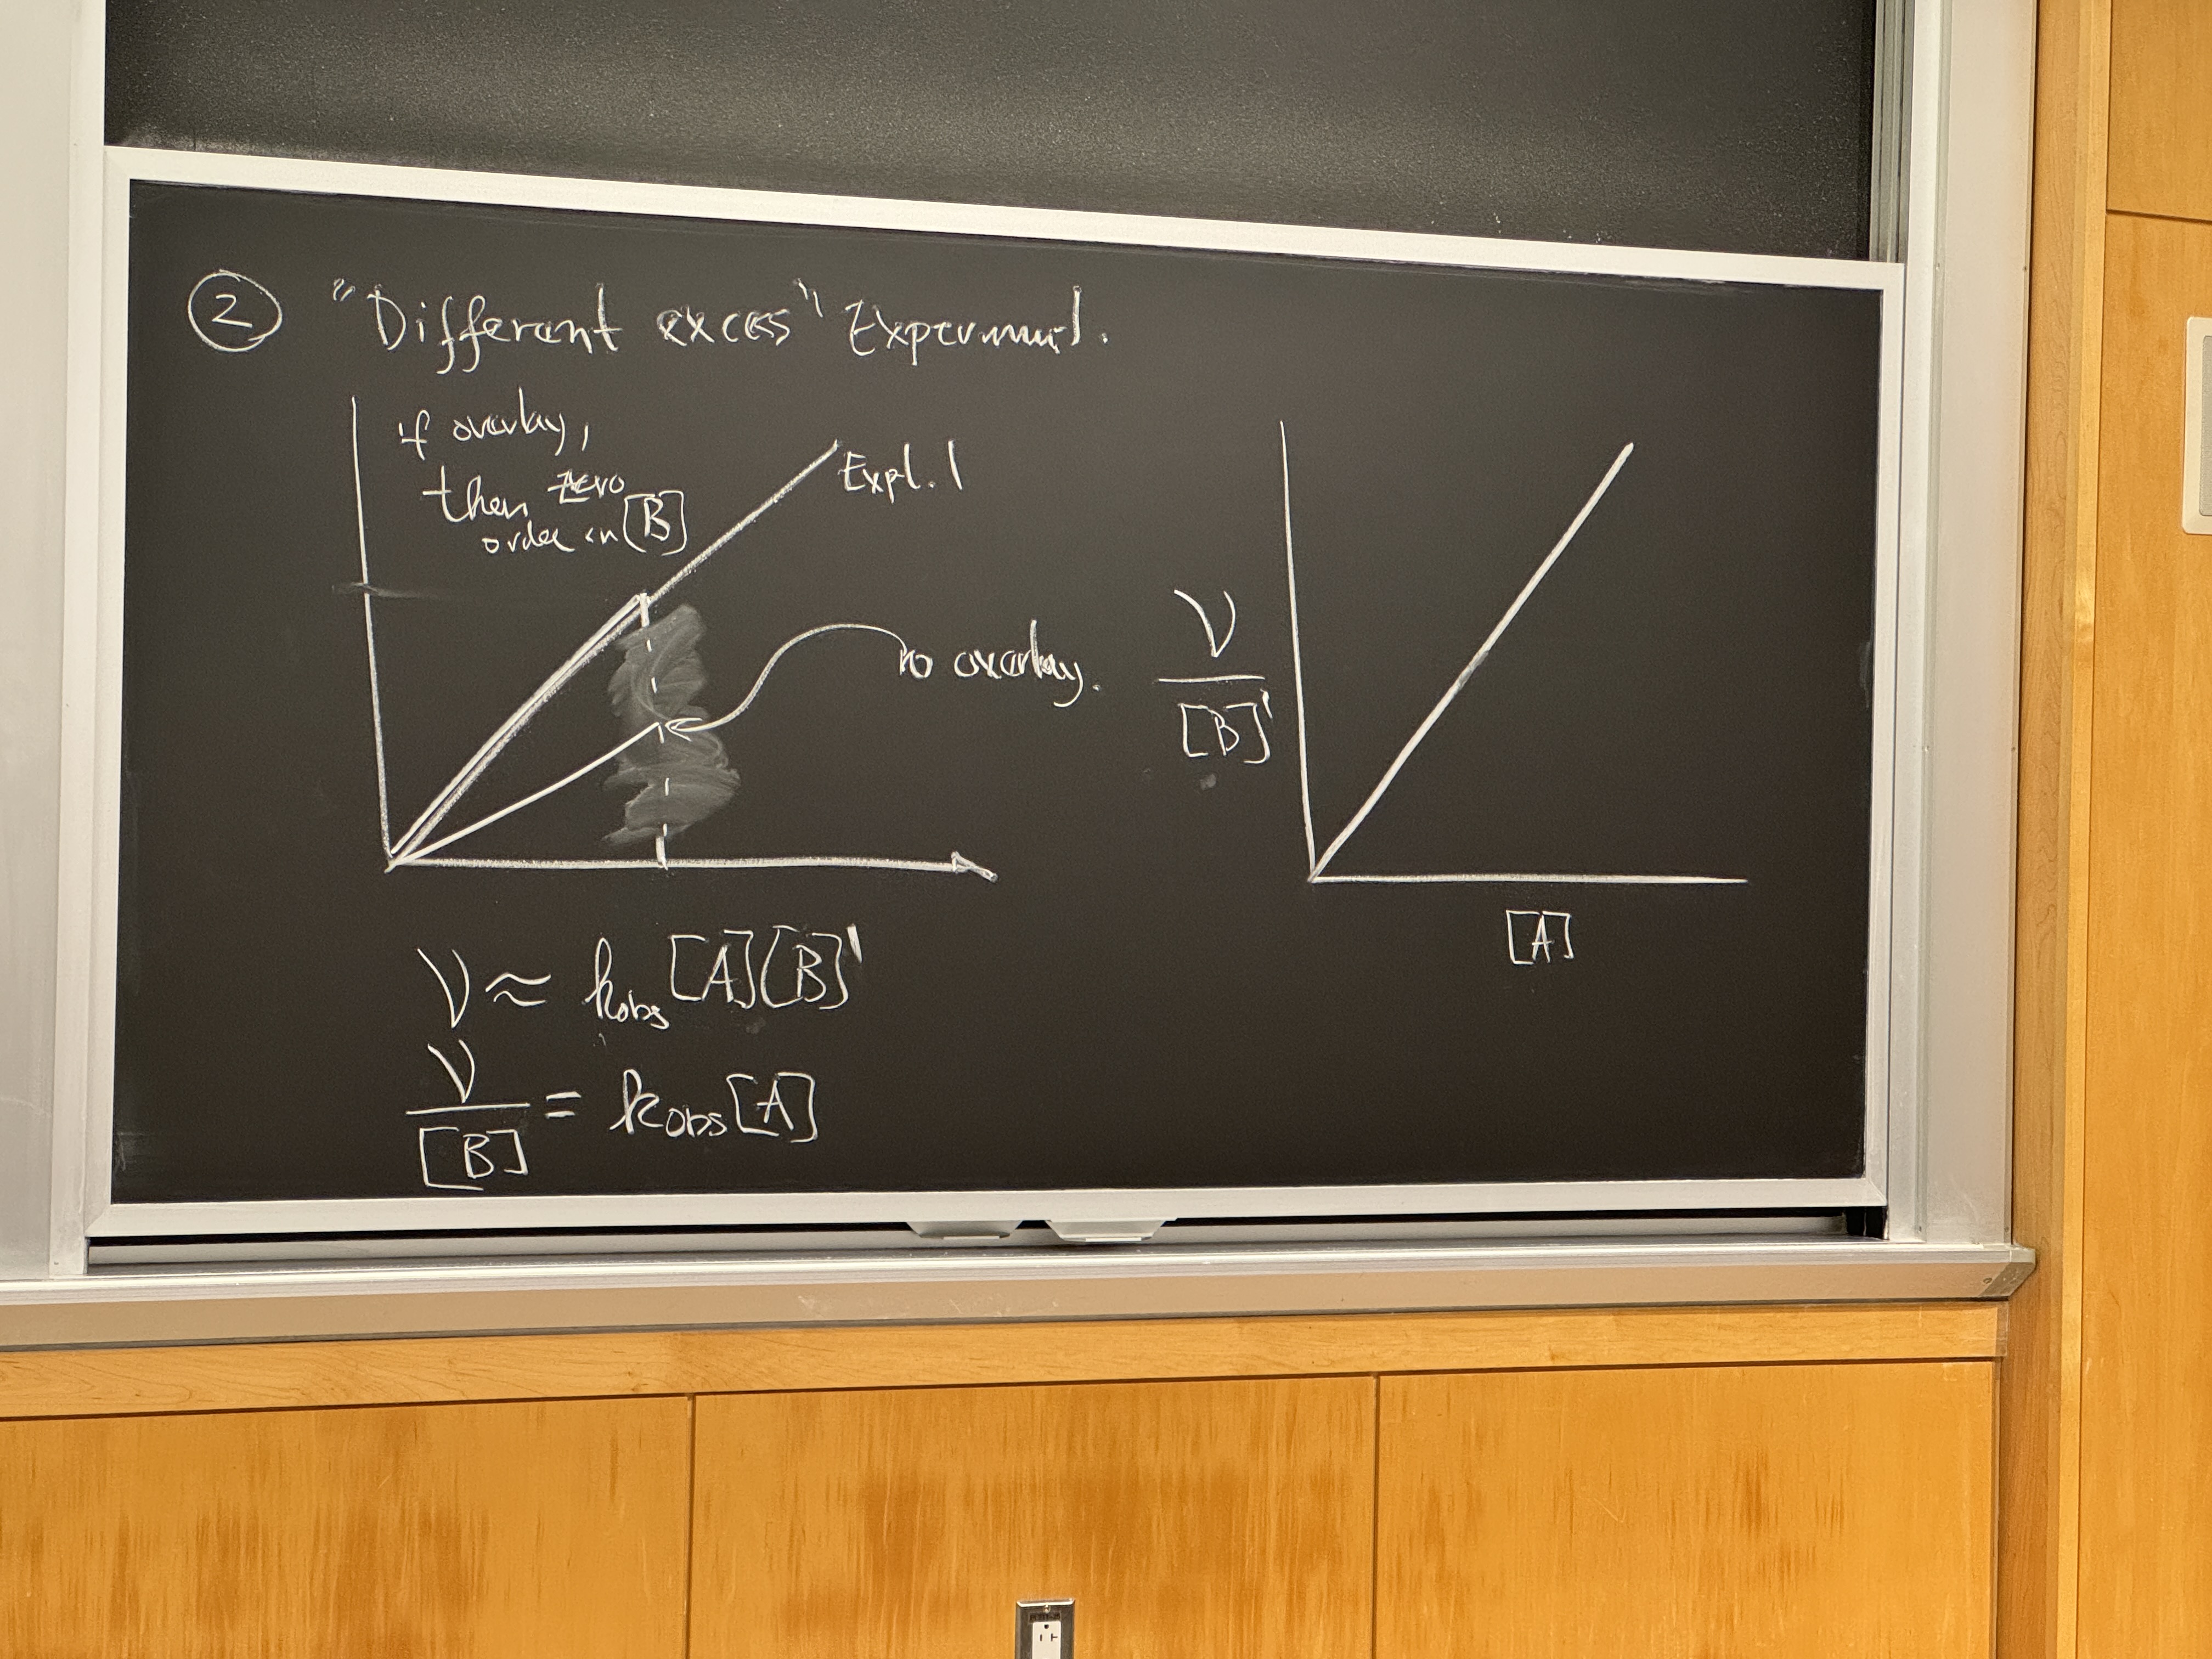 ② "Different excess" Experiment.
if overlay,
then zero
order in [B]
Expt. 1
no overlay.
ν ≈ kobs [A][B]¹
ν
[B] = kobs[A]
ν
[B]¹
[A]